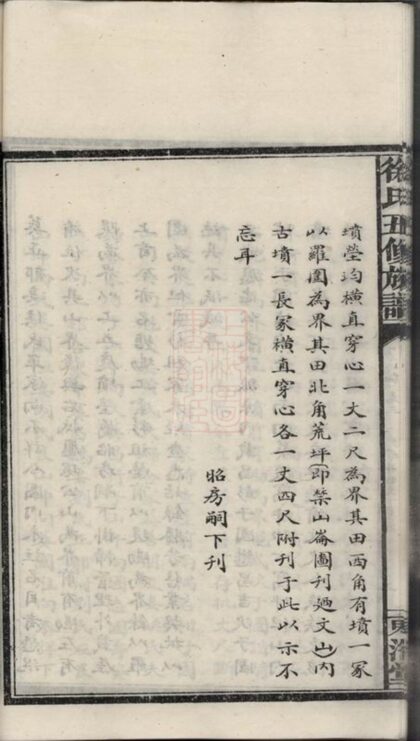 墳塋均橫直穿心一丈二尺為界其田西角有墳一冢
以羅圍為界其田北角荒坪(即禁山崙圖刊廻文山)內
古墳一長冢橫直穿心各一丈四尺附刊于此以示不
忘耳
昭房嗣下刊
徐氏五修族譜